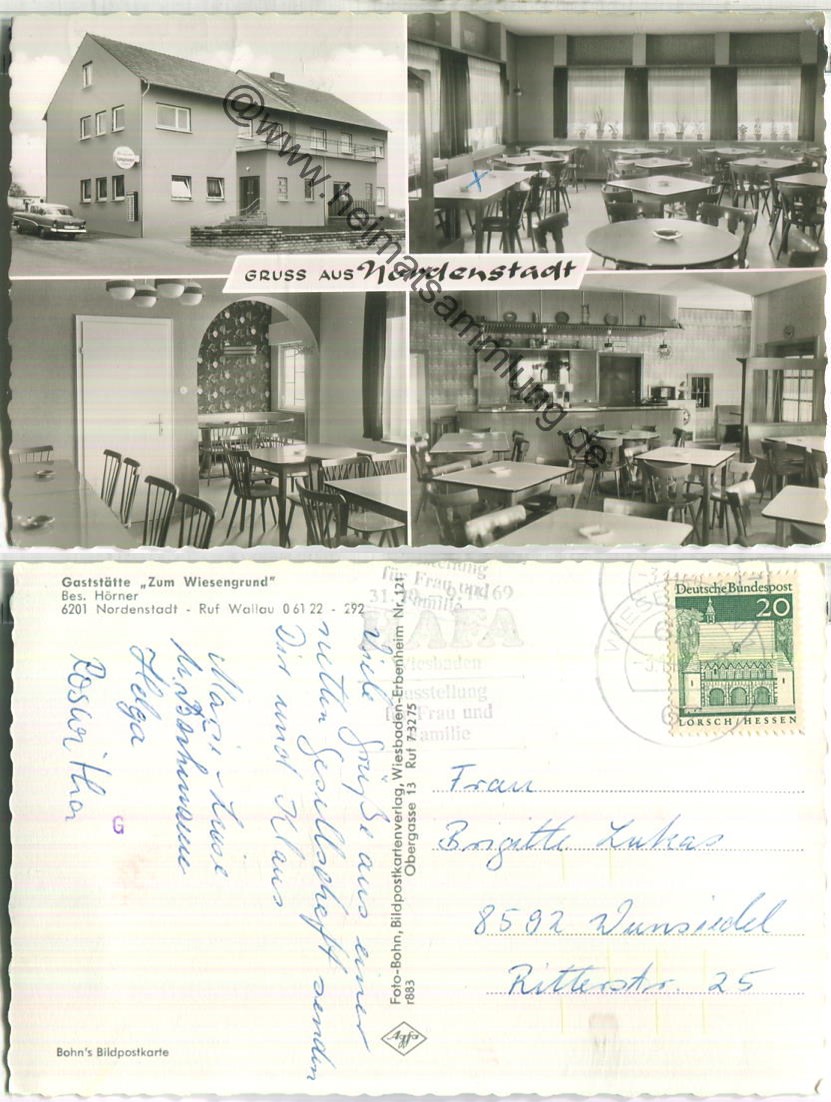 GRUSS AUS Nordenstadt
@www.heimatsammlung.de
x
Gaststätte „Zum Wiesengrund"
Bes. Hörner
6201 Nordenstadt - Ruf Wallau 0 61 22 - 292
Viele Grüße aus einer
netten Gesellschaft senden
Dir und Klaus
Marie-Luise
Helga
Roswitha
G
Bohn's Bildpostkarte
Foto-Bohn, Bildpostkartenverlag, Wiesbaden-Erbenheim Nr. 121
Obergasse 13 Ruf 7 32 75
r883
Agfa
für Frau und
Familie
HAFA
Wiesbaden
Ausstellung
für Frau und
Familie
WIESB
Deutsche Bundespost
20
LORSCH/HESSEN
Frau
Brigitte Lukas
8592 Wunsiedel
Ritterstr. 25